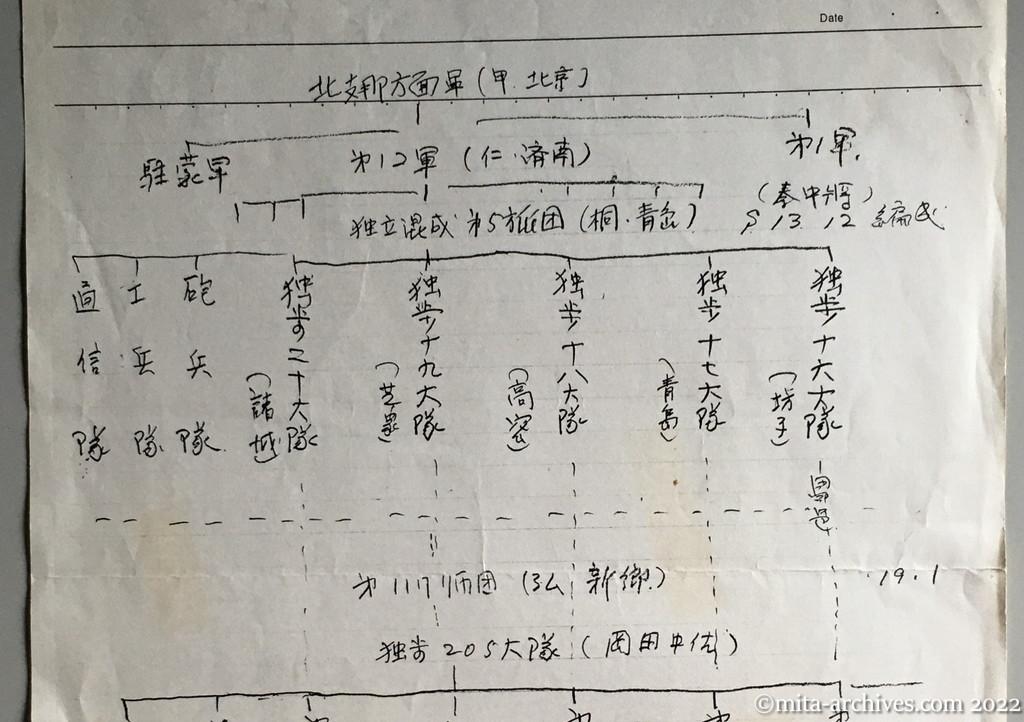 Date
北支那方面軍(甲.北京)
駐蒙軍
才12軍(仁.済南)
才1軍.
独立混成 才5旅団(桐.青島)
(秦中将)
S 13. 12 編成
通信隊
工兵隊
砲兵隊
独歩二十大隊
(諸城)
独歩十九大隊
(芝罘)
独歩十八大隊
(高密)
独歩十七大隊
(青島)
独歩十六大隊
(坊子)
才117师団(弘 新郷)
19.1
独歩205大隊(岡田中佐)
©mita-archives.com 2022